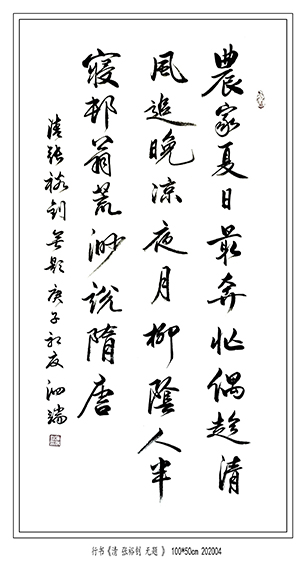 農家夏日最奔忙偶趁清
風追晚涼夜月柳陰人半
寢邨翁荒渺說隋唐
清張裕釗無題庚子初夏泗端
行书《清 张裕钊 无题 》 100*50cm 202004